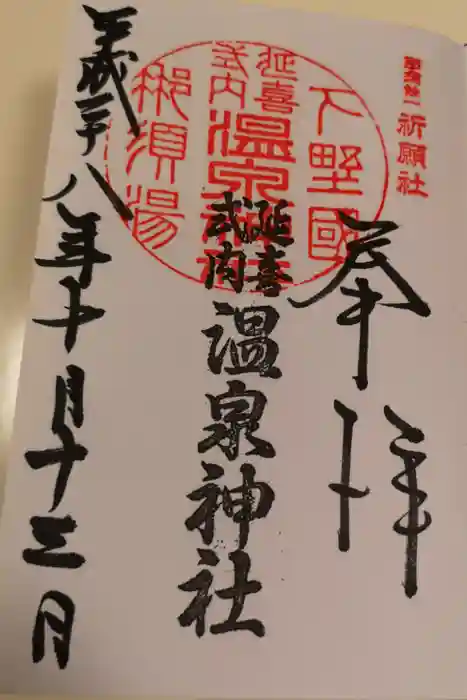 祈願社
奉拝
下野國
延喜
式内
温泉神社
那須湯
延喜
式内
温泉神社
平成二十八年十月十三日